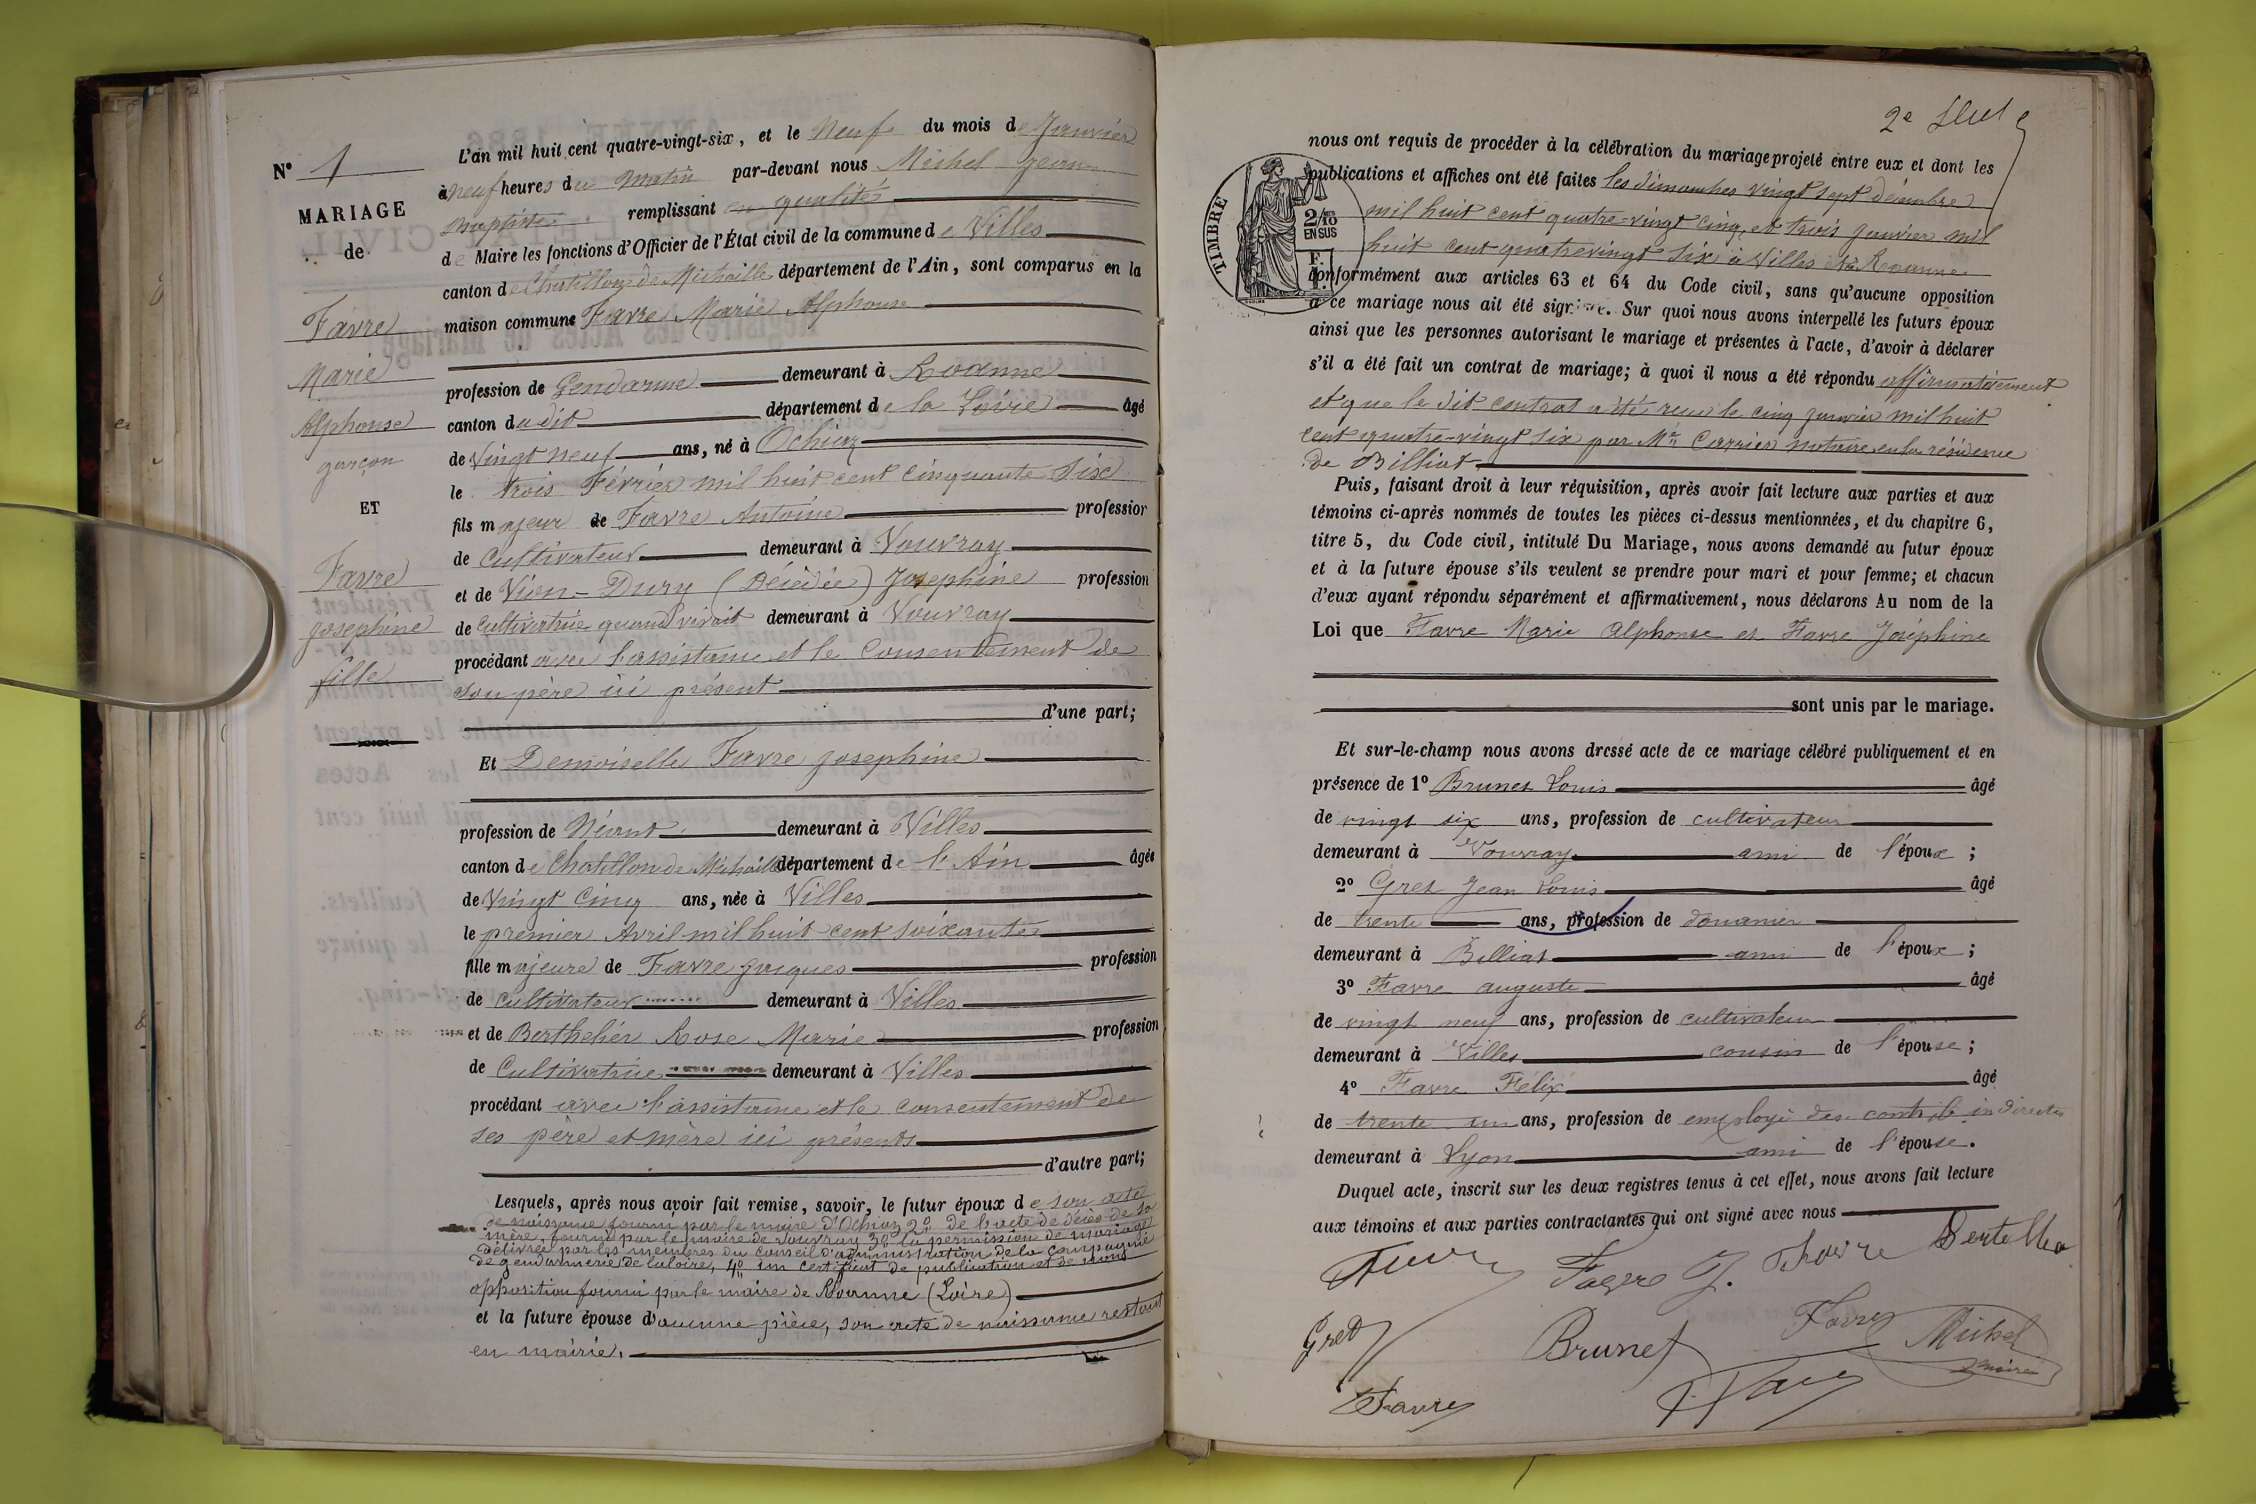 N° 1
MARIAGE
de
Favre
Marie
Alphonse
garçon
ET
Favre
Josephine
fille
L'an mil huit cent quatre-vingt-six, et le Neuf du mois de Janvier
à neuf heures du Matin par-devant nous Michel Jean
Baptiste remplissant en qualité
de Maire les fonctions d'Officier de l'État civil de la commune de Villes
canton de Chatillon de Michaille département de l'Ain, sont comparus en la
maison commune Favre Marie Alphonse
profession de Gendarme demeurant à Roanne
canton dudit département de la Loire âgé
de Vingt neuf ans, né à Ochiaz
le trois Février mil huit cent cinquante Six
fils majeur de Favre Antoine profession
de Cultivateur demeurant à Vouvray
et de Vion-Dury (Décédée) Josephine profession
de Cultivatrice quand vivait demeurant à Vouvray
procédant avec l'assistance et le Consentement de
son père ici présent
d'une part;
Et Demoiselle Favre Josephine
profession de Néant demeurant à Villes
canton de Chatillon de Michaille département de l'Ain âgée
de Vingt Cinq ans, née à Villes
le premier Avril mil huit cent soixante
fille majeure de Favre Jacques profession
de cultivateur demeurant à Villes
et de Berthelier Rose Marie profession
de Cultivatrice demeurant à Villes
procédant avec l'assistance et le consentement de
ses père et mère ici présents
d'autre part;
Lesquels, après nous avoir fait remise, savoir, le futur époux de son acte
de naissance fourni par le maire d'Ochiaz 2° de l'acte de décès de sa
mère, fourni par le maire de Vouvray 3° la permission de mariage
délivrée par les membres du Conseil d'administration de la Compagnie
de gendarmerie de la Loire, 4° un certificat de publication et de non
opposition fourni par le maire de Roanne (Loire)
et la future épouse d'aucune pièce, son acte de naissance restant
en mairie.
2e
TIMBRE
2/10 EN SUS
nous ont requis de procéder à la célébration du mariage projeté entre eux et dont les
publications et affiches ont été faites les dimanches vingt sept décembre
mil huit cent quatre-vingt cinq, et trois janvier mil
huit cent quatrevingt six à Villes et à Roanne
conformément aux articles 63 et 64 du Code civil, sans qu'aucune opposition
à ce mariage nous ait été signifiée. Sur quoi nous avons interpellé les futurs époux
ainsi que les personnes autorisant le mariage et présentes à l'acte, d'avoir à déclarer
s'il a été fait un contrat de mariage; à quoi il nous a été répondu affirmativement
et que le dit contrat a été reçu le cinq janvier mil huit
cent quatre-vingt six par Me Carrier notaire en la résidence
de Billiat
Puis, faisant droit à leur réquisition, après avoir fait lecture aux parties et aux
témoins ci-après nommés de toutes les pièces ci-dessus mentionnées, et du chapitre 6,
titre 5, du Code civil, intitulé Du Mariage, nous avons demandé au futur époux
et à la future épouse s'ils veulent se prendre pour mari et pour femme; et chacun
d'eux ayant répondu séparément et affirmativement, nous déclarons Au nom de la
Loi que Favre Marie Alphonse et Favre Joséphine
sont unis par le mariage.
Et sur-le-champ nous avons dressé acte de ce mariage célébré publiquement et en
présence de 1° Brunet Louis âgé
de vingt six ans, profession de cultivateur
demeurant à Vouvray ami de l'époux;
2° Gret Jean Louis âgé
de trente ans, profession de douanier
demeurant à Billiat ami de l'époux;
3° Favre auguste âgé
de vingt neuf ans, profession de cultivateur
demeurant à Villes cousin de l'épouse;
4° Favre Félix âgé
de trente un ans, profession de employé des contrib. indirectes
demeurant à Lyon ami de l'épouse.
Duquel acte, inscrit sur les deux registres tenus à cet effet, nous avons fait lecture
aux témoins et aux parties contractantes qui ont signé avec nous
Favre J.
Gret Brunet Favre Michel
maire
Favre